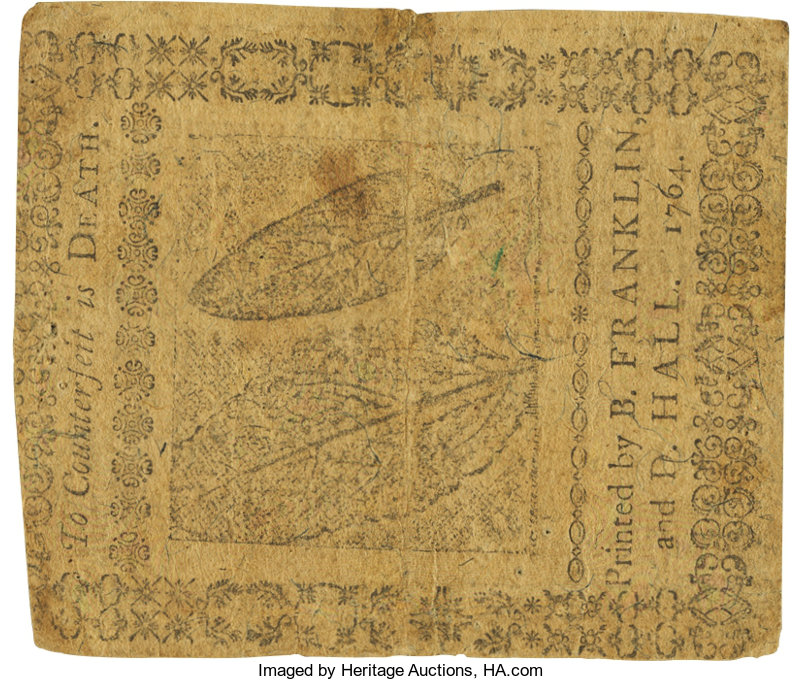 To Counterfeit is DEATH.
Printed by B. FRANKLIN,
and D. HALL. 1764.
Imaged by Heritage Auctions, HA.com